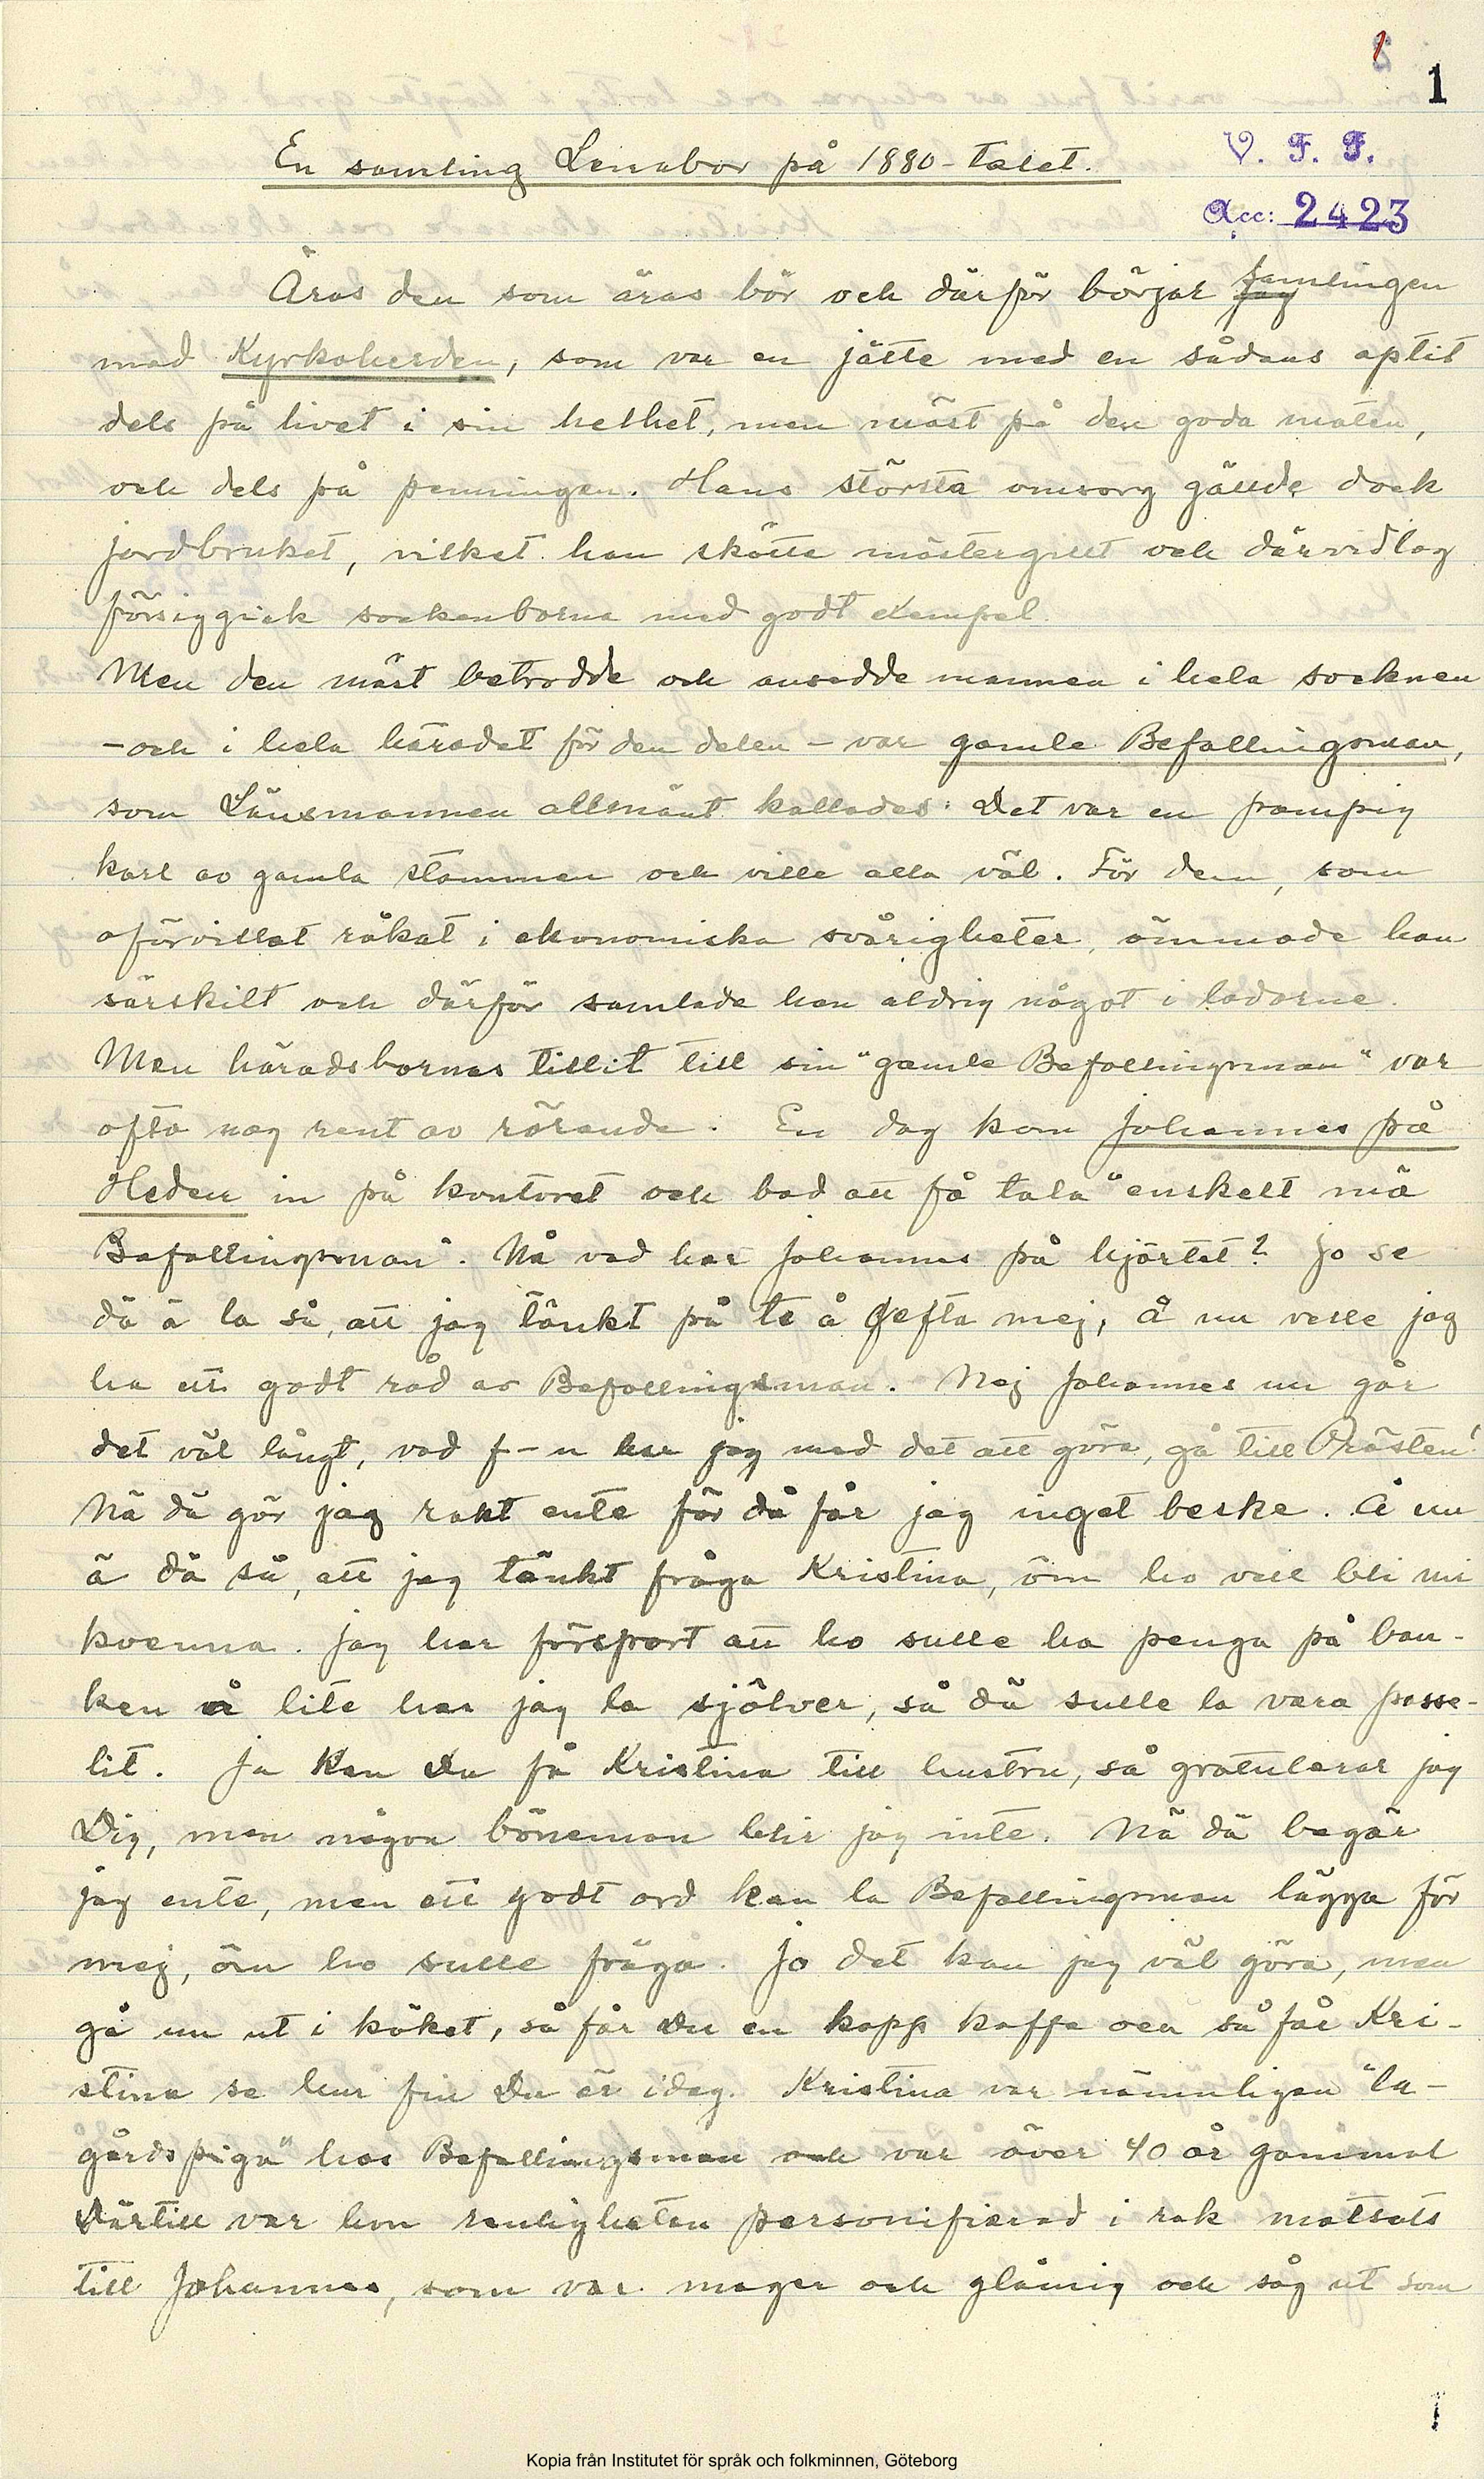 1
En samling Lenabor på 1880-talet.
V. F. F.
Acc: 2423
Äras den som äras bör och därför börjar samlingen
med Kyrkoherden, som var en jätte med en sådans aptit
dels på livet i sin helhet, men mäst på den goda maten,
och dels på penningen. Hans största omsorg gällde dock
jordbruket, vilket han skötte mästergillt och därvidlag
försiggick sockenborna med godt exempel.
Men den mäst betrodde och ansedde mannen i hela socknen
- och i hela häradet för den delen - var gamle Befallingsman,
som Länsmannen allmänt kallades. Det var en frampig
karl av gamla stammen och ville alla väl. För dem, som
oförvillat råkat i ekonomiska svårigheter, ömmade han
särskilt och därför samlade han aldrig något i ladorne.
Men häradsbornas tillit till sin "gamle Befallingsman" var
ofta nog rent av rörande. En dag kom Johannes på
Heden in på kontoret och bad att få tala "enskelt mä
Befallingsman". Nå vad har Johannes på hjärtat? Jo se
dä ä la så, att jag tänkt på te å gefta mej, å nu velle jag
ha ett godt råd av Befallingsman. Nej Johannes nu går
det väl långt, vad f-n har jag med det att göra, gå till Prästen!
Nä dä gör jag rakt ente för då får jag inget beske. Å nu
ä dä så, att jag tänkt fråga Kristina, öm ho vell bli mi
kvenna. Jag har försport att ho sulle ha penga på ban-
ken å lite har jag la sjölver, så dä sulle la vara passe-
lit. Ja kan Du få Kristina till hustru, så gratulerar jag
Dig, men någon böneman blir jag inte. Nä dä begär
jag ente, men ett godt ord kan la Befallingsman lägga för
mej, öm ho sulle fråga. Jo det kan jag väl göra, men
gå nu ut i köket, så får Du en kopp kaffe och så får Kri-
stina se hur fin Du är idag. Kristina var nämnligen "la-
gårdspiga" hos Befallingsman och var över 40 år gammal
Därtill var hon renligheten personifierad i rak motsats
till Johannes, som var mager och glåmig och såg ut som
1
Kopia från Institutet för språk och folkminnen, Göteborg